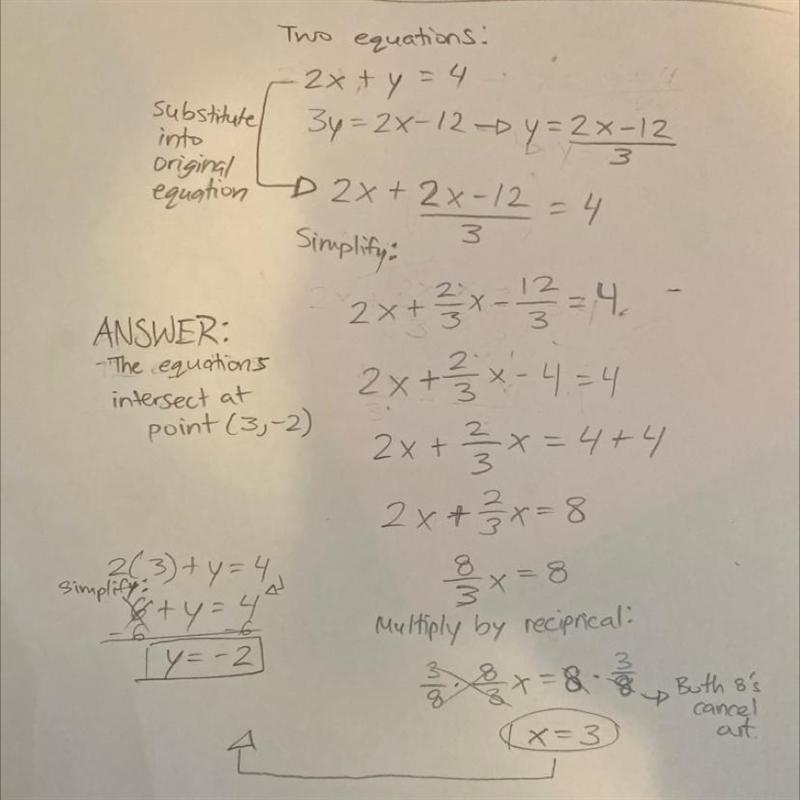 Two equations:
2x + y = 4
3y = 2x - 12 → y = 2x - 12 / 3
substitute
into
original
equation
2x + 2x - 12 / 3 = 4
Simplify:
2x + 2/3 x - 12/3 = 4
2x + 2/3 x - 4 = 4
2x + 2/3 x = 4 + 4
2x + 2/3 x = 8
8/3 x = 8
Multiply by reciprical:
3/8 · 8/3 x = 8 · 3/8 → Both 8's
cancel
out.
x = 3
2(3) + y = 4
Simplify:
6 + y = 4
-6 -6
y = -2
ANSWER:
- The equations
intersect at
point (3, -2)